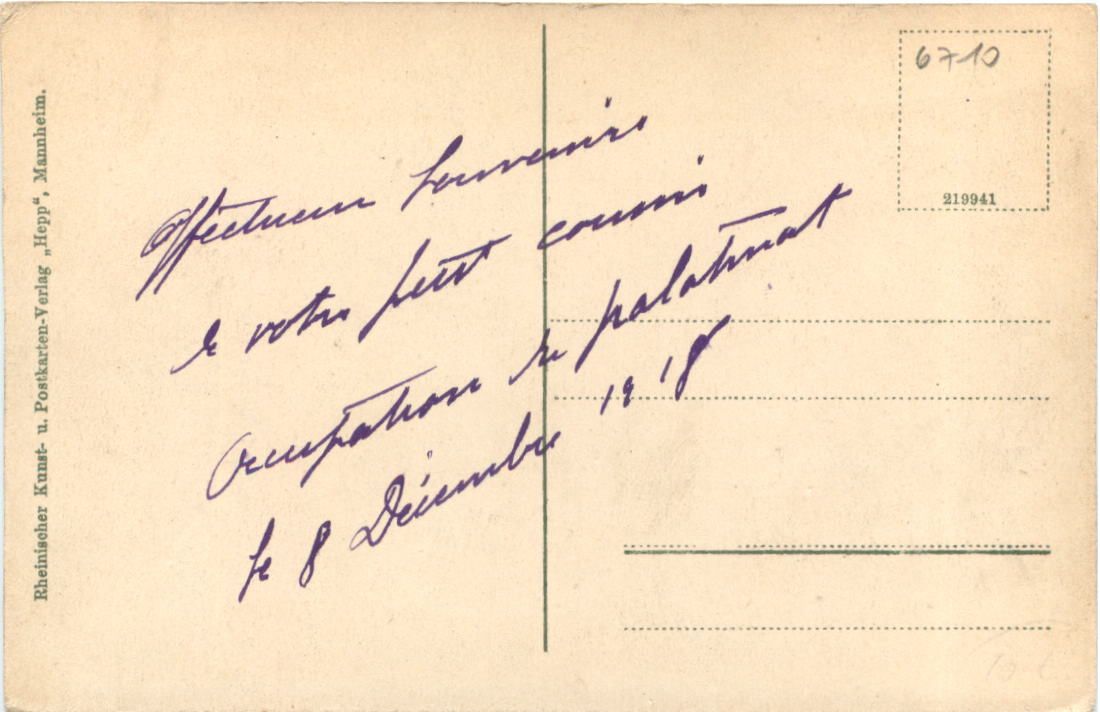 Rheinischer Kunst- u. Postkarten-Verlag „Hepp“, Mannheim.
6710
219941
Affectueux Souvenirs
de votre petit cousin
Occupation du palatinat
le 8 Décembre 1918